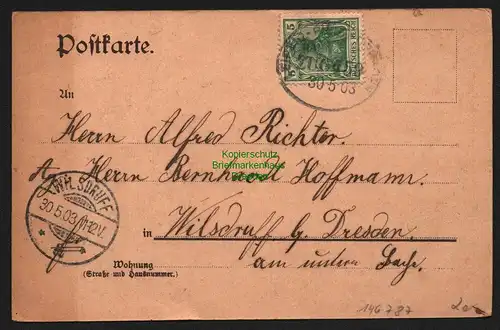 Postkarte.
5
DEUTSCHES REICH
30 5 03
An
Herrn Alfred Richter.
Kopierschutz
Briefmarkenhaus
Ag. Herrn Bernhardt Hoffmann.
WILSDRUFF
30.5.03 11-12V.
*
in Wilsdruff b. Dresden.
am untern Bache.
Wohnung
(Straße und Hausnummer.)
146787